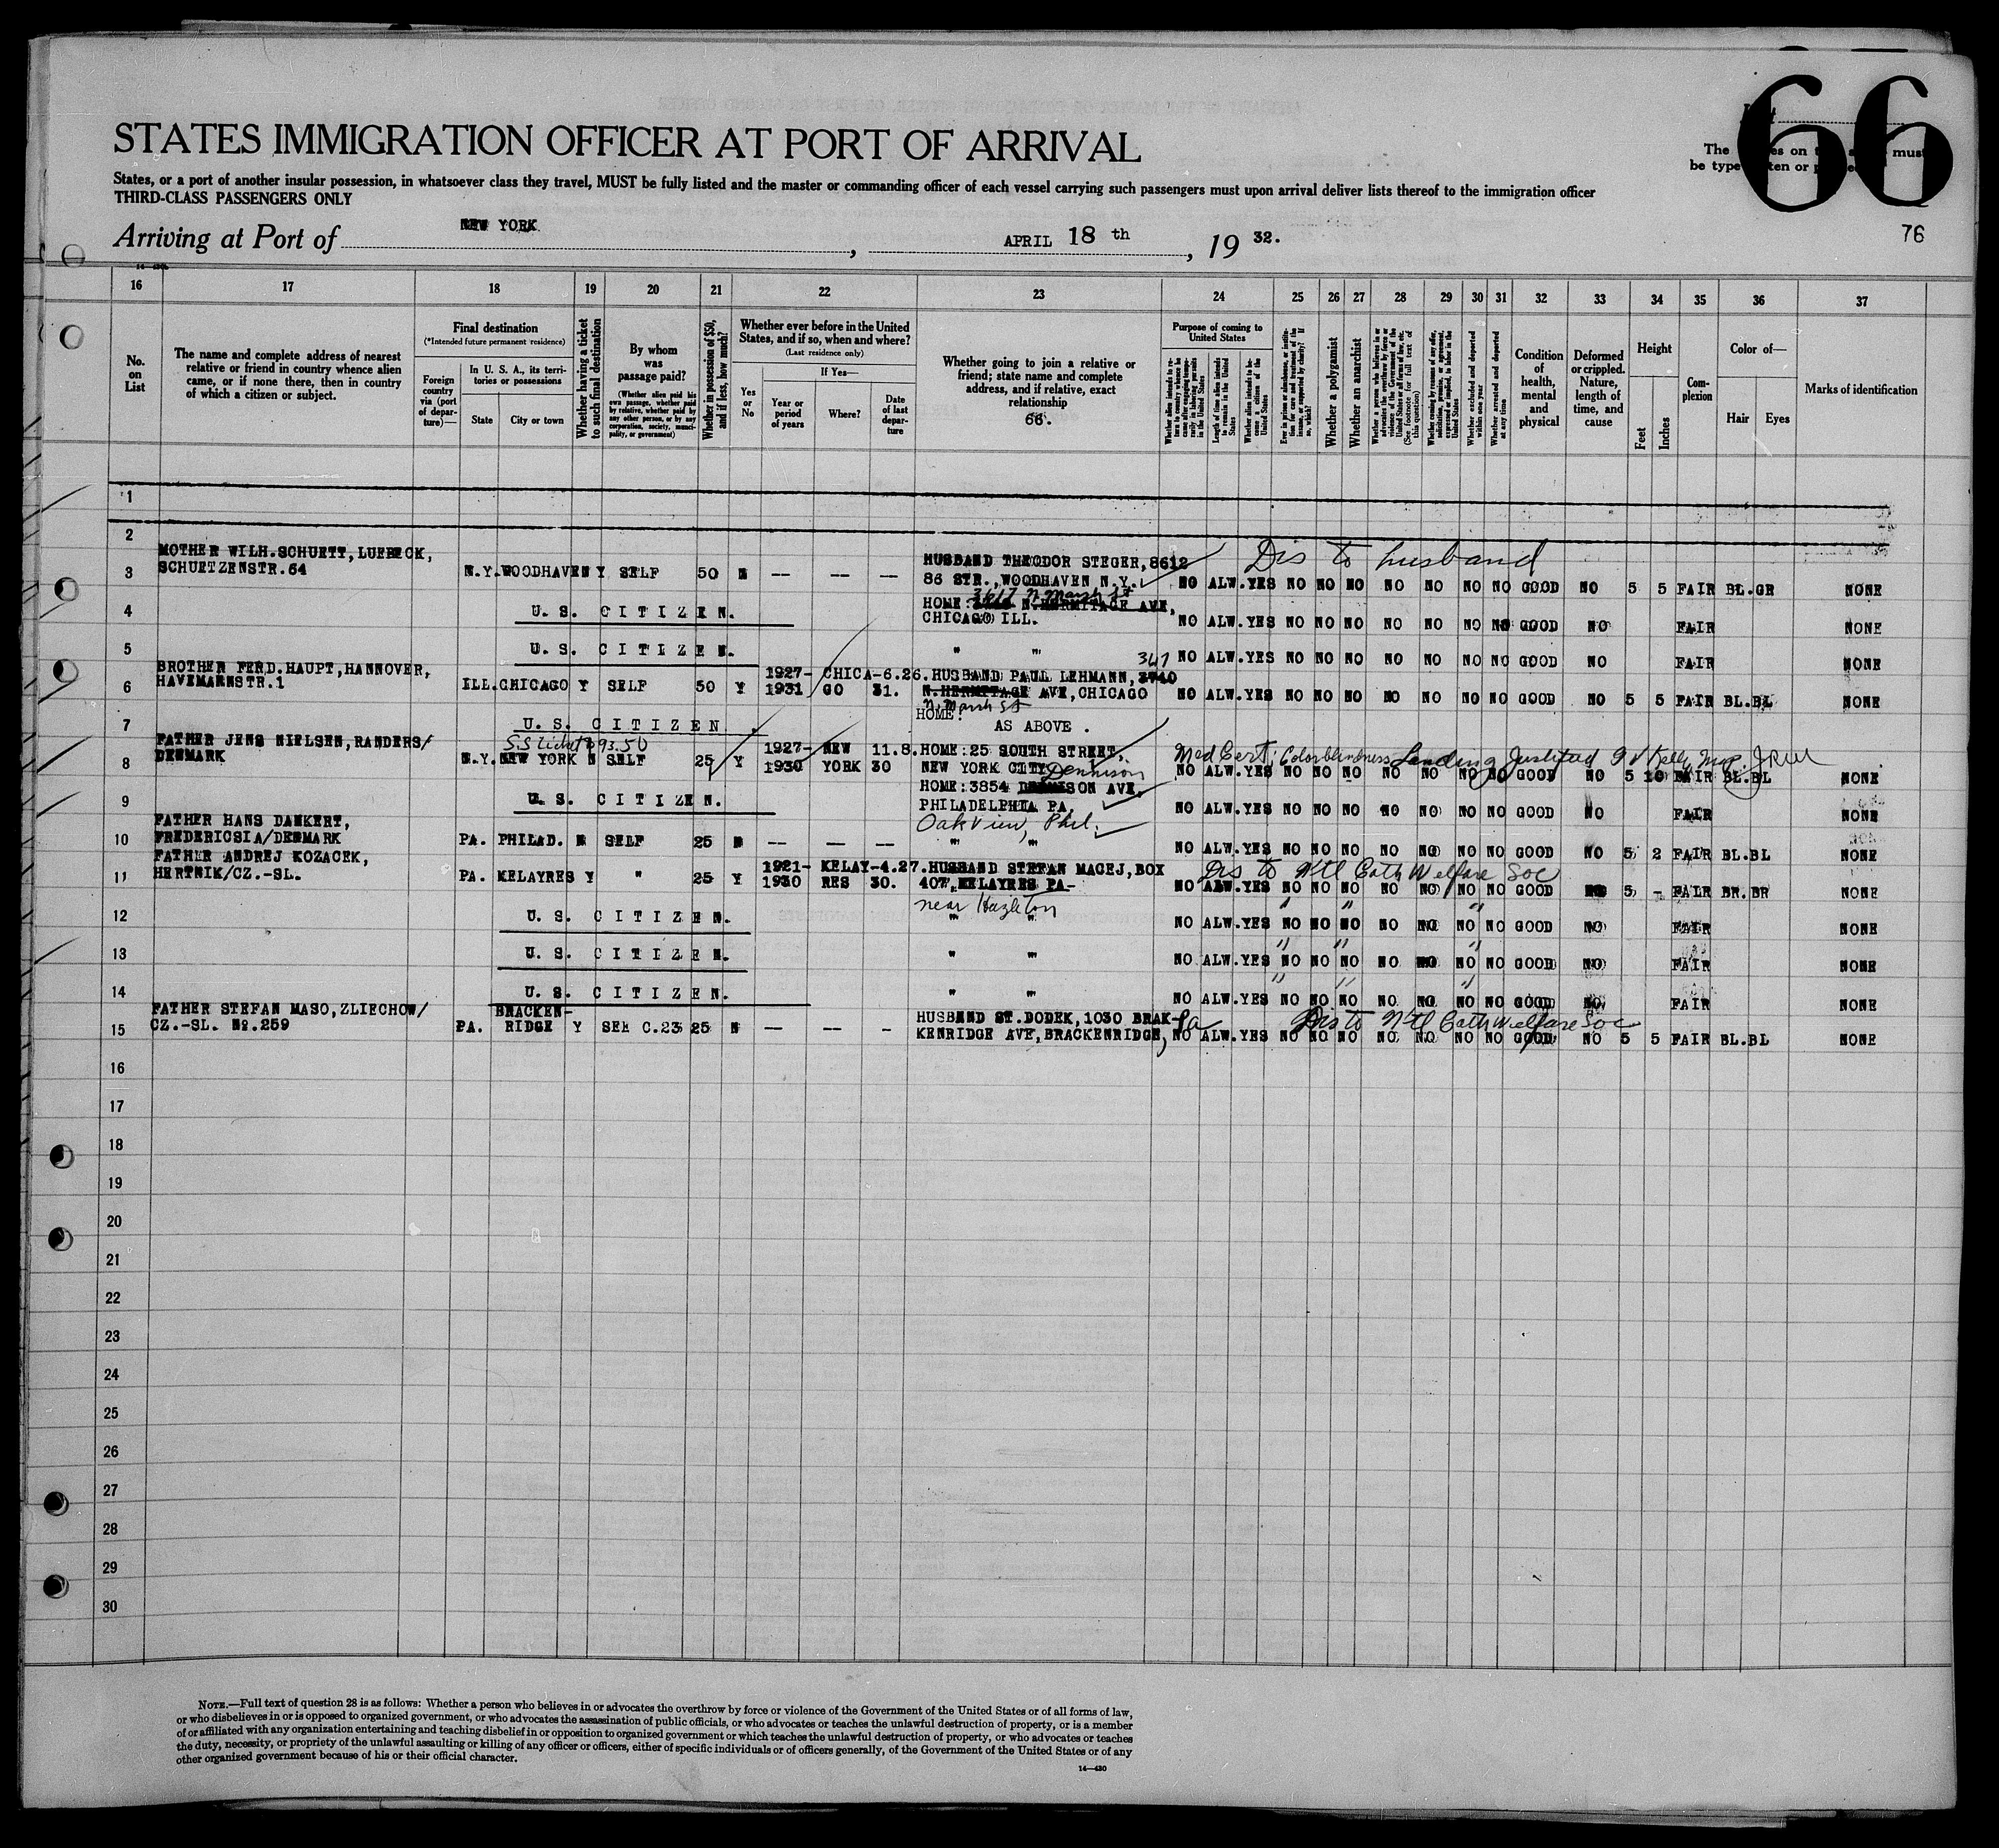 66
STATES IMMIGRATION OFFICER AT PORT OF ARRIVAL
States, or a port of another insular possession, in whatsoever class they travel, MUST be fully listed and the master or commanding officer of each vessel carrying such passengers must upon arrival deliver lists thereof to the immigration officer
THIRD-CLASS PASSENGERS ONLY
Arriving at Port of NEW YORK, APRIL 18 th, 19 32.
76
16 17 18 19 20 21 22 23 24 25 26 27 28 29 30 31 32 33 34 35 36 37
No. on List
The name and complete address of nearest relative or friend in country whence alien came, or if none there, then in country of which a citizen or subject.
Final destination
(*Intended future permanent residence)
Foreign country via (port of departure)—
In U. S. A., its territories or possessions
State
City or town
Whether having a ticket to such final destination
By whom was passage paid?
(Whether alien paid his own passage, whether paid by relative, whether paid by any other person, or by any corporation, society, municipality, or government)
Whether in possession of $50, and if less, how much?
Whether ever before in the United States, and if so, when and where?
(Last residence only)
Yes or No
If Yes—
Year or period of years
Where?
Date of last departure
Whether going to join a relative or friend; state name and complete address, and if relative, exact relationship
66.
Purpose of coming to United States
Length of time alien intends to remain in the United States
Whether alien intends to become a citizen of the United States
Whether a polygamist
Whether an anarchist
(See footnote for full text of this question)
Whether excluded and deported within one year
Whether arrested and deported at any time
Condition of health, mental and physical
Deformed or crippled. Nature, length of time, and cause
Height
Feet
Inches
Complexion
Color of—
Hair
Eyes
Marks of identification
1
2
MOTHER WILH.SCHUETT, LUEBECK,
3 SCHUETZENSTR.64 N.Y. WOODHAVEN Y SELF 50 N — — — HUSBAND THEODOR STEGER, 8612
86 STR., WOODHAVEN N.Y. Dis to husband
NO ALW. YES NO NO NO NO NO NO NO GOOD NO 5 5 FAIR BL.GR NONE
4 U. S. CITIZEN. HOME: 3617 N. Marsh St N. HERMITAGE AVE,
CHICAGO ILL. NO ALW. YES NO NO NO NO NO NO NO GOOD NO FAIR NONE
5 U. S. CITIZEN. " " NO ALW. YES NO NO NO NO NO NO NO GOOD NO FAIR NONE
BROTHER FERD. HAUPT, HANNOVER,
6 HAVEMANNSTR.1 ILL. CHICAGO Y SELF 50 Y 1927-1931 CHICAGO 6.26.31. HUSBAND PAUL LEHMANN, 3740 361
N. HERMITAGE AVE, CHICAGO NO ALW. YES NO NO NO NO NO NO NO GOOD NO 5 5 FAIR BL.BL NONE
N. Marsh St
7 U. S. CITIZEN. HOME: AS ABOVE.
S.S ticket $93.50
FATHER JENS NIELSEN, RANDERS/
8 DENMARK N.Y. NEW YORK N SELF 25 Y 1927-1930 NEW YORK 11.8.30 HOME: 25 SOUTH STREET,
NEW YORK CITY Med Cert; Colorblindness Landing Justified
NO ALW. YES NO NO NO NO NO NO NO GOOD NO 5 10 FAIR BL.BL NONE
9 U. S. CITIZEN. HOME: 3854 Dennison AVE,
PHILADELPHIA PA. NO ALW. YES NO NO NO NO NO NO NO GOOD NO FAIR NONE
Oakview, Phil.
FATHER HANS DANKERT,
10 FREDERICSIA/DENMARK PA. PHILAD. N SELF 25 N — — — " " NO ALW. YES NO NO NO NO NO NO NO GOOD NO 5 2 FAIR BL.BL NONE
FATHER ANDREJ KOZACEK,
11 HERTNIK/CZ.-SL. PA. KELAYRES Y " 25 Y 1921-1930 KELAYRES 4.27.30. HUSBAND STEFAN MACEJ, BOX
407, KELAYRES PA- Dis to Ntl Cath Welfare Soc
NO ALW. YES NO NO NO NO NO NO NO GOOD NO 5 - FAIR BR.BR NONE
near Hazleton
12 U. S. CITIZEN. " " NO ALW. YES NO NO NO NO NO NO NO GOOD NO FAIR NONE
13 U. S. CITIZEN. " " NO ALW. YES NO NO NO NO NO NO NO GOOD NO FAIR NONE
14 U. S. CITIZEN. " " NO ALW. YES NO NO NO NO NO NO NO GOOD NO FAIR NONE
FATHER STEFAN MASO, ZLIECHOW/
15 CZ.-SL. No.259 PA. BRACKENRIDGE Y SELF C.23 25 N — — - HUSBAND ST. DODEK, 1030 BRAK-
KENRIDGE AVE, BRACKENRIDGE, Pa Dis to Ntl Cath Welfare Soc
NO ALW. YES NO NO NO NO NO NO NO GOOD NO 5 5 FAIR BL.BL NONE
16
17
18
19
20
21
22
23
24
25
26
27
28
29
30
NOTE.—Full text of question 28 is as follows: Whether a person who believes in or advocates the overthrow by force or violence of the Government of the United States or of all forms of law,
or who disbelieves in or is opposed to organized government, or who advocates the assassination of public officials, or who advocates or teaches the unlawful destruction of property, or is a member
of or affiliated with any organization entertaining and teaching disbelief in or opposition to organized government or which teaches the unlawful destruction of property, or who advocates or teaches
the duty, necessity, or propriety of the unlawful assaulting or killing of any officer or officers, either of specific individuals or of officers generally, of the Government of the United States or of any
other organized government because of his or their official character.
14—430